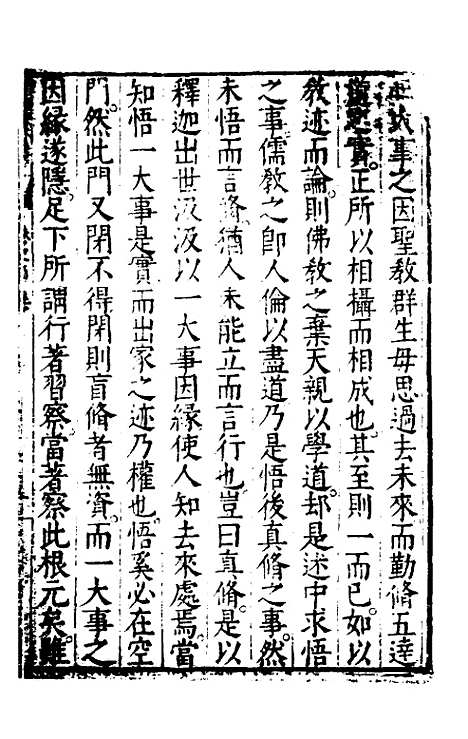 大事之因聖教群生毋思過去未來而勤脩五達
道之實正所以相攝而相成也其至則一而已如以
教迹而論則佛教之棄天親以學道却是迷中求悟
之事儒教之即人倫以盡道乃是悟後真脩之事然
未悟而言脩猶人未能立而言行也豈曰真脩是以
釋迦出世汲汲以一大事因緣使人知去來處焉當
知悟一大事是實而出家之迹乃權也悟奚必在空
門然此門又閉不得閉則盲脩者無資而一大事之
因緣遂隱足下所謂行著習察當著察此根元矣雖